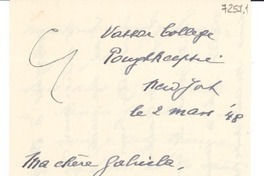 7251.1
Vassar College
Poughkeepsie
New York
le 2 mars '48
Ma chère Gabriela,